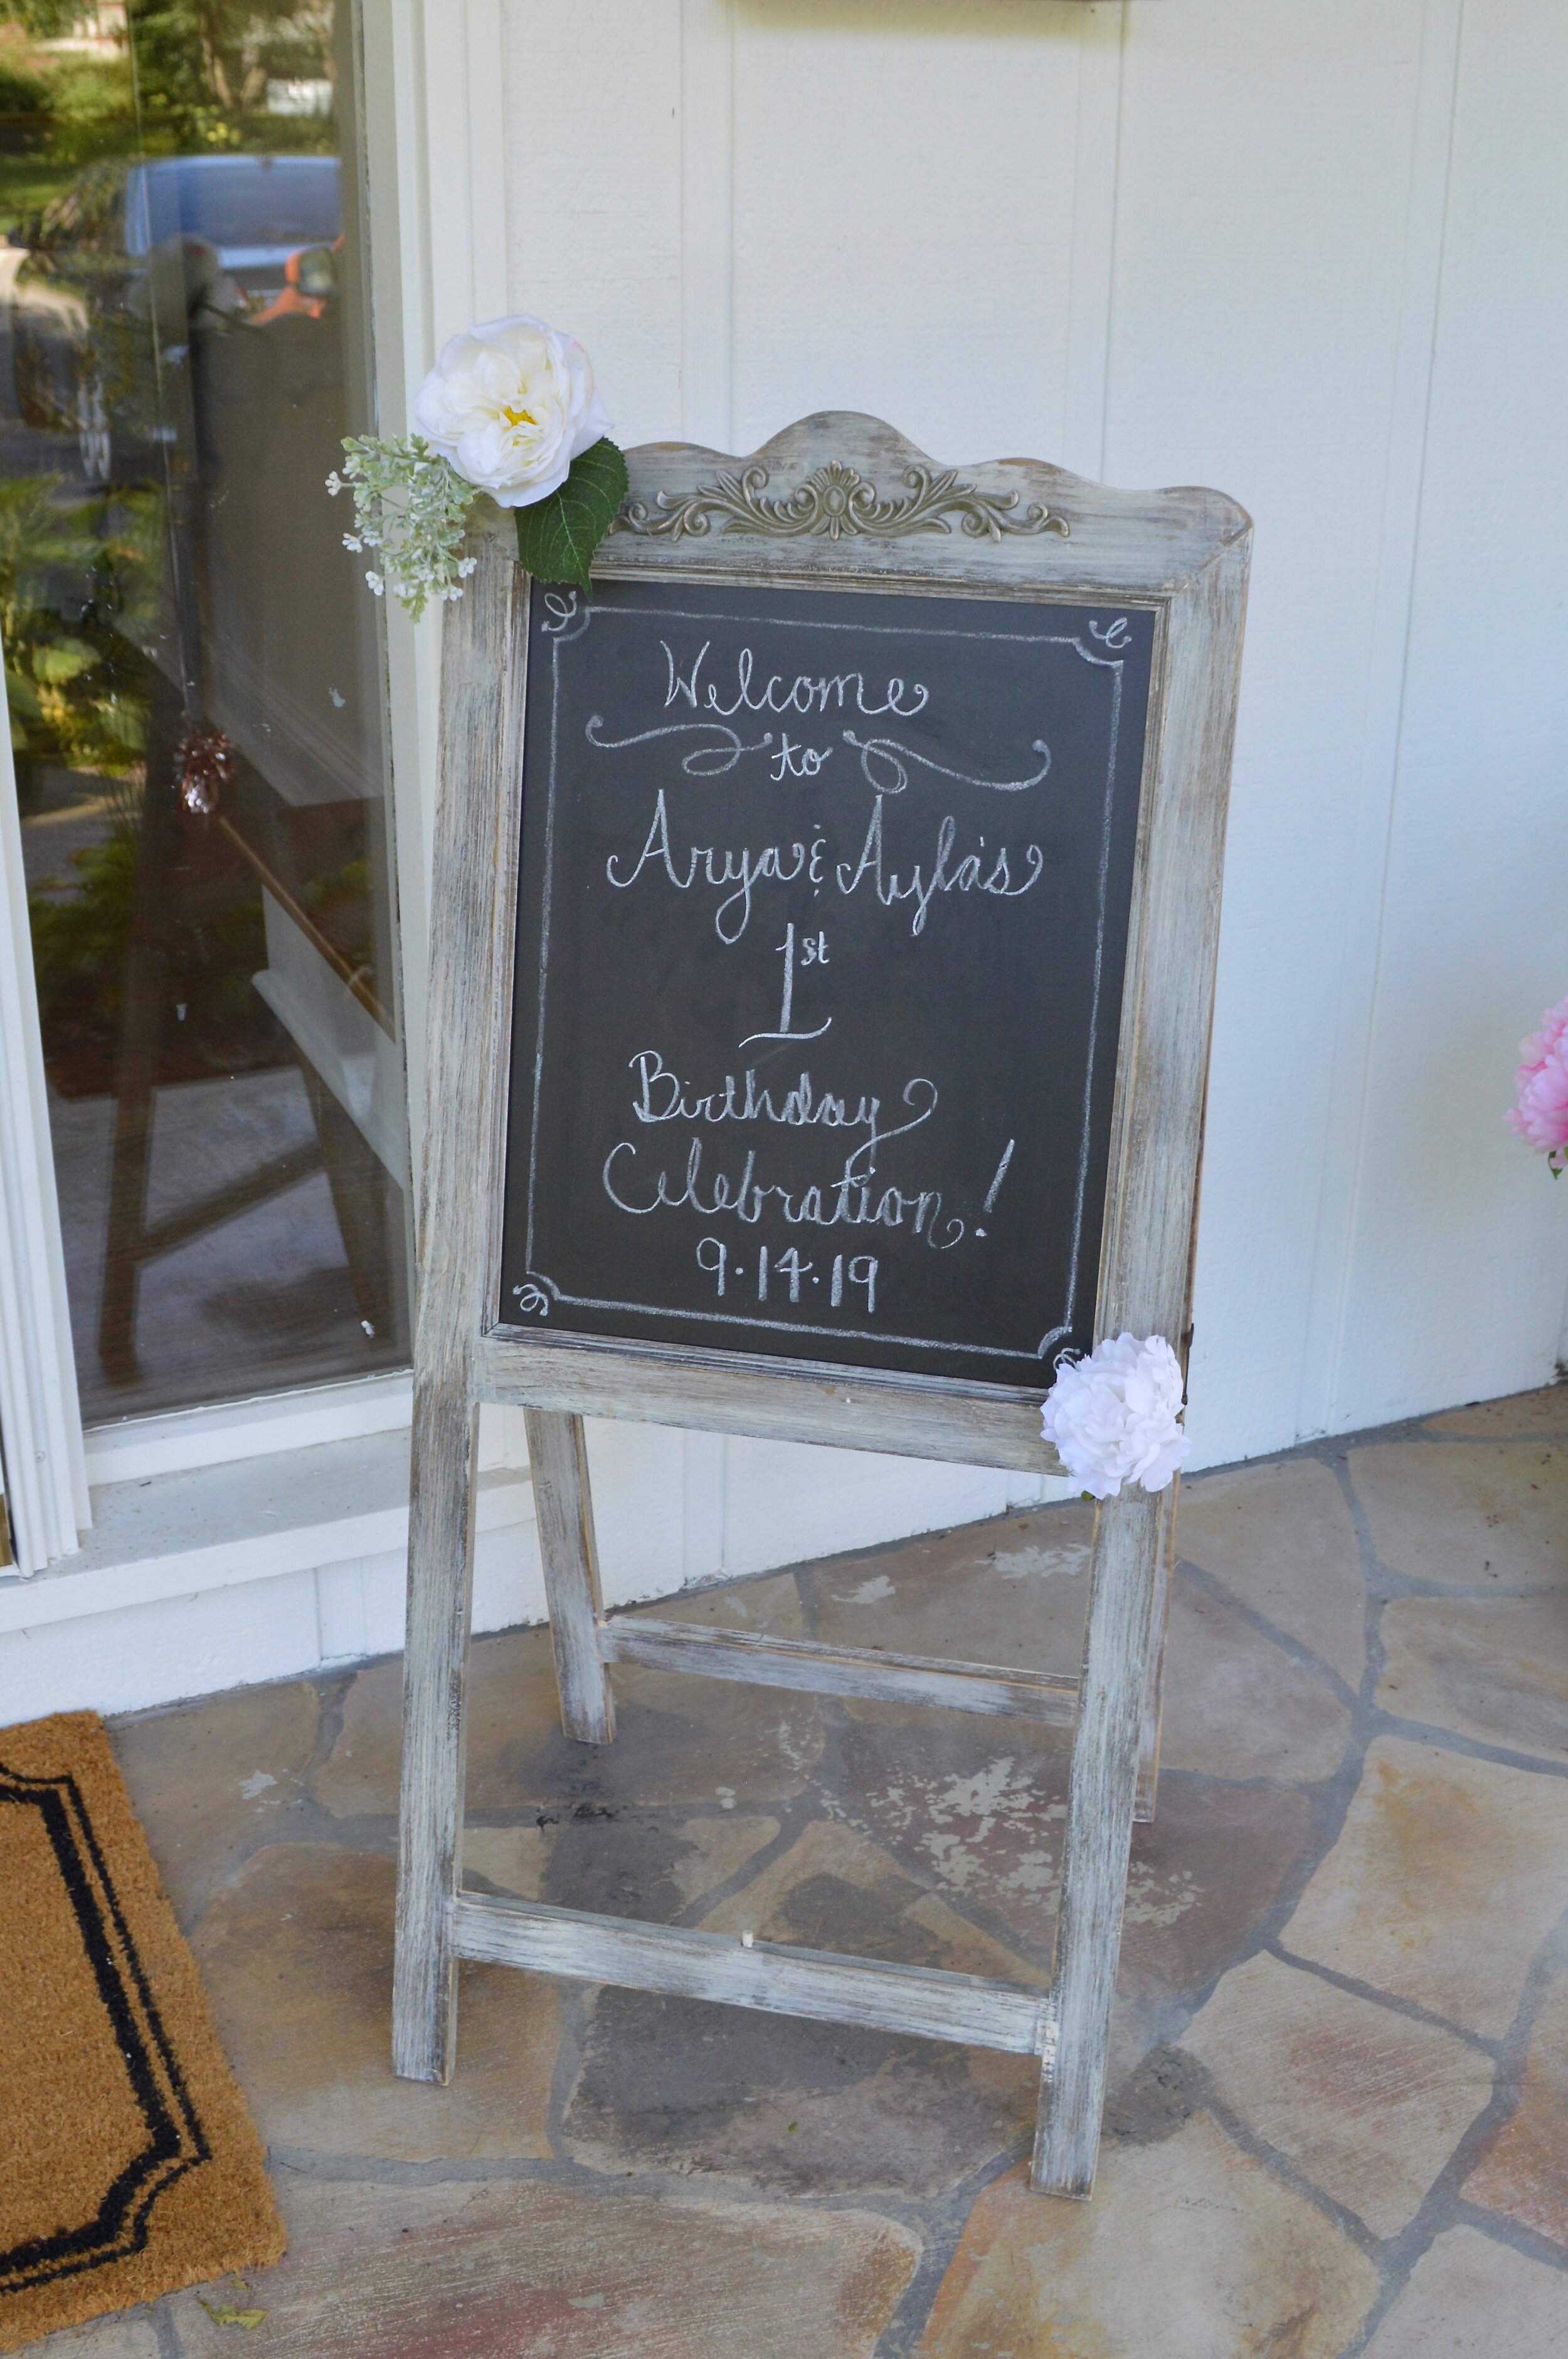 Welcome
to
Arya & Ayla's
1st
Birthday
Celebration!
9.14.19